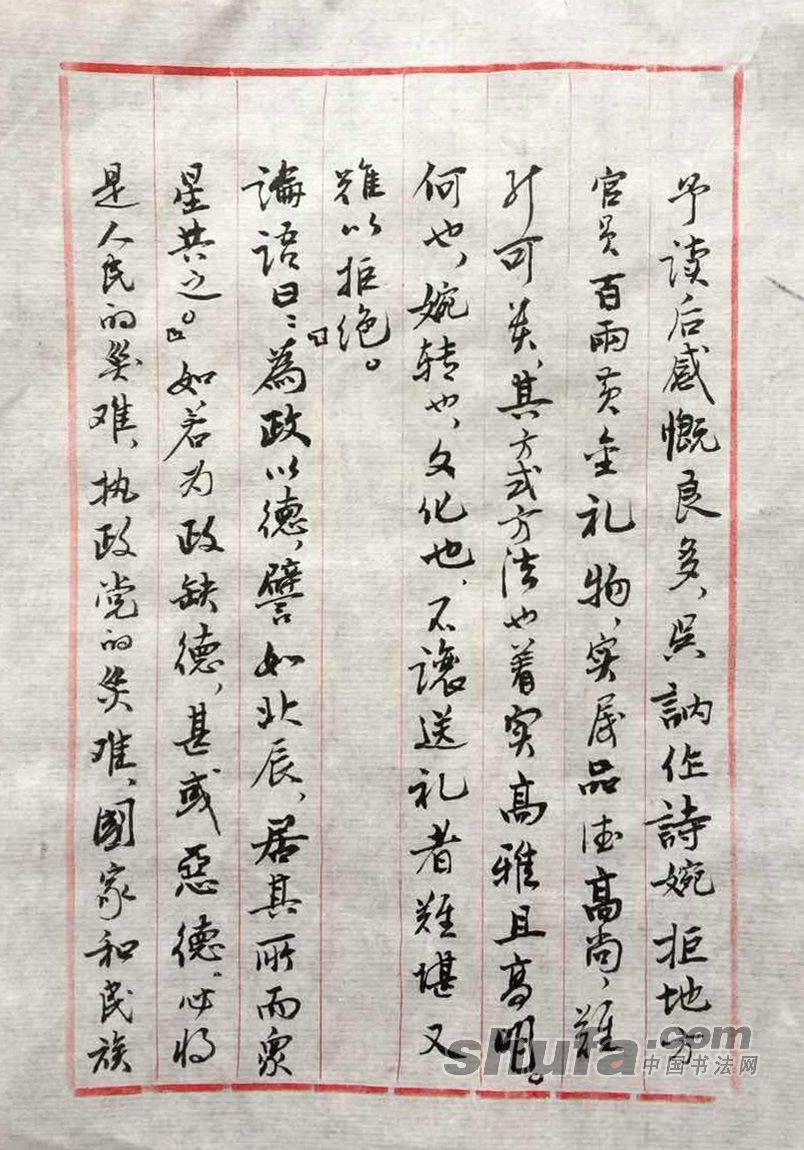 予读后感慨良多，吴訥作詩婉拒地方
官员百兩黄金礼物，实属品德高尚，難
能可贵，其方式方法也着实高雅且高明。
何也，婉转也，文化也，不讓送礼者難堪又
難以拒绝。
論語曰：“為政以德，譬如北辰，居其所而衆
星共之。”如若为政缺德，甚或惡德，必将
是人民的灾难，执政党的灾难，國家和民族
shufa.com
中国书法网